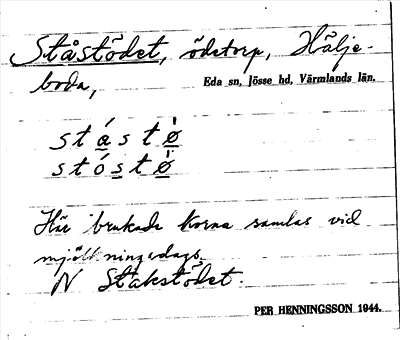 Ståstödet, ödetorp, Hälje-
boda,
Eda sn, Jösse hd, Värmlands län.
Här brukade korna samlas vid
mjölkningsdags.
N Stakstödet.
PER HENNINGSSON 1944.